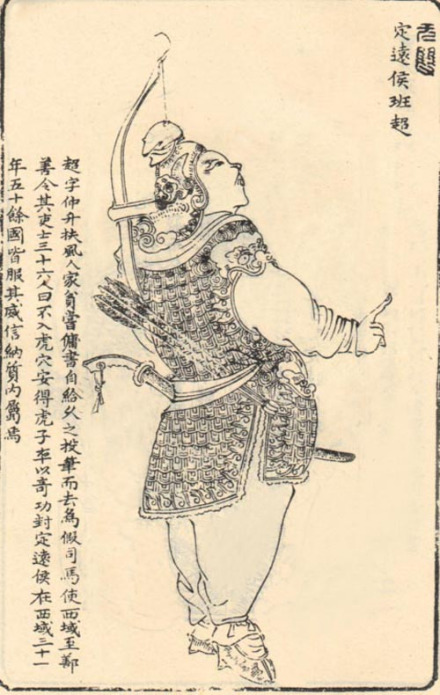 定遠侯班超
超字仲升扶風人家貧嘗傭書自給久之投筆而去為假司馬使西域至鄯
善令其吏士三十六人曰不入虎穴安得虎子率以奇功封定遠侯在西域三十一
年五十餘國皆服其威信納質內屬焉